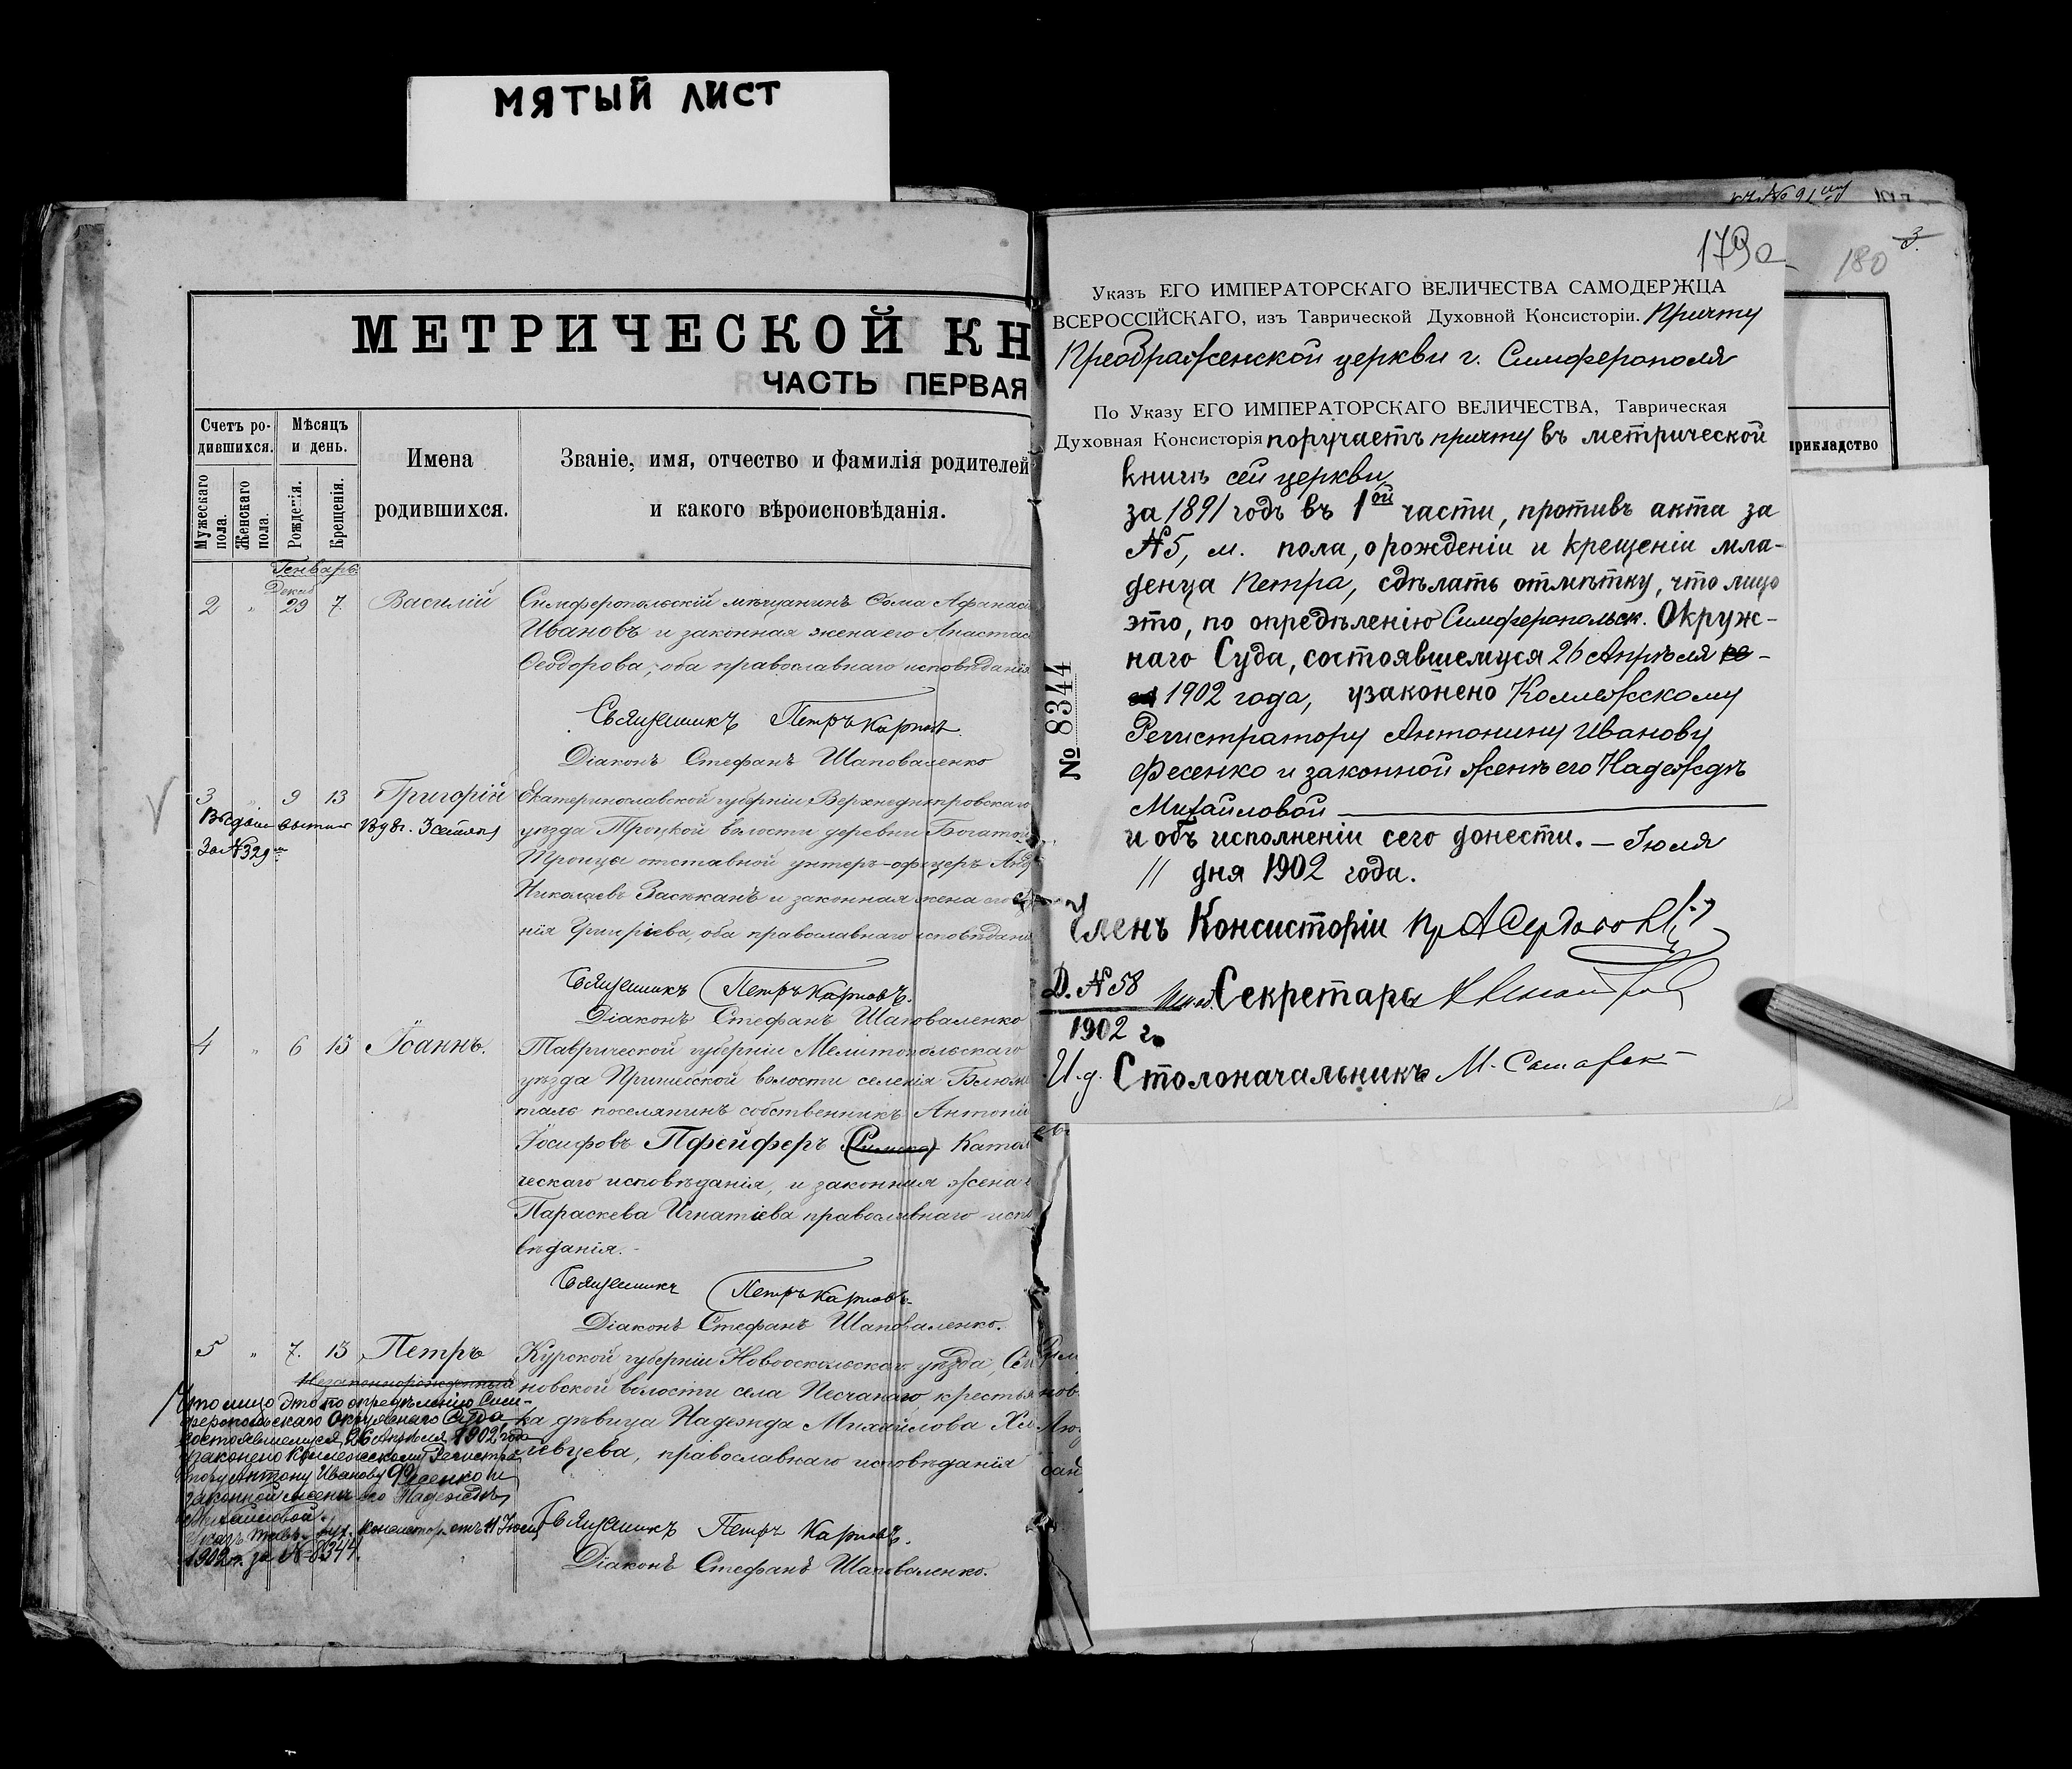 МЯТЫЙ ЛИСТ
МЕТРИЧЕСКОЙ КН
ЧАСТЬ ПЕРВАЯ
Счетъ ро-
дившихся.
Мужескаго пола.
Женскаго пола.
Мѣсяцъ
и день.
Рожденія.
Крещенія.
Имена
родившихся.
Званіе, имя, отчество и фамилія родителей
и какого вѣроисповѣданія.
Генварь
Декаб
2 " 29 7. Василій
Симферопольскій мѣщанинъ Ѳома Афанась
Ивановъ и законная жена его Анастас
Ѳеодорова, оба православнаго исповѣданія
Священникъ Петръ Карповъ.
Діаконъ Стефанъ Шаповаленко
3 " 9 13 Григорій
за № 329
Екатеринославской губерніи Верхнеднѣпровскаго
уѣзда Троицкой волости деревни Богатой
Троицы отставной унтеръ-офицеръ Анд
Николаевъ Засѣканъ и законная жена его
нія Григоріева, оба православнаго исповѣдані
Священникъ Петръ Карповъ.
Діаконъ Стефанъ Шаповаленко
4 " 6 15 Іоаннъ.
Таврической губерніи Мелитопольскаго
уѣзда Пришибской волости селенія Блюмен
таль поселянинъ собственникъ Антоній
Іосифовъ Пфейферъ Катол
ческаго исповѣданія, и законная жена
Параскева Игнатіева православнаго испо
вѣданія.
Священникъ Петръ Карповъ.
Діаконъ Стефанъ Шаповаленко.
5 " 7. 13 Петръ
Незаконнорожденный
Что лицо это по опредѣленію Сим-
феропольскаго Окружнаго Суда
состоявшемуся 26 Апрѣля 1902 года
узаконено Коллежскому Регистра
тору Антону Иванову Фесенко и
законной женѣ его Надеждѣ
Михайловой.
Указъ Тавр. Дух. Консистор. отъ 11 Іюля
1902 г. за № 8344.
Курской губерніи Новооскольскаго уѣзда,
новской волости села Песчанаго крестья
ка дѣвица Надежда Михайлова
евцева, православнаго исповѣданія
Священникъ Петръ Карповъ.
Діаконъ Стефанъ Шаповаленко.
179а
180
3.
Указъ ЕГО ИМПЕРАТОРСКАГО ВЕЛИЧЕСТВА САМОДЕРЖЦА
ВСЕРОССІЙСКАГО, изъ Таврической Духовной Консисторіи. Причту
Преображенской церкви г. Симферополя
По Указу ЕГО ИМПЕРАТОРСКАГО ВЕЛИЧЕСТВА, Таврическая
Духовная Консисторія поручаетъ причту въ метрической
книгѣ сей церкви
за 1891 годъ въ 1ой части, противъ акта за
№ 5, м. пола, о рожденіи и крещеніи мла-
денца Петра, сдѣлать отмѣтку, что лицо
это, по опредѣленію Симферопольск. Окруж-
наго Суда, состоявшемуся 26 Апрѣля
1902 года, узаконено Коллежскому
Регистратору Антонину Иванову
Фесенко и законной женѣ его Надеждѣ
Михайловой
и объ исполненіи сего донести. – Іюля
11 дня 1902 года.
№ 8344
Членъ Консисторіи
Секретарь
Д. № 58
1902 г.
И. д. Столоначальникъ
прикладство